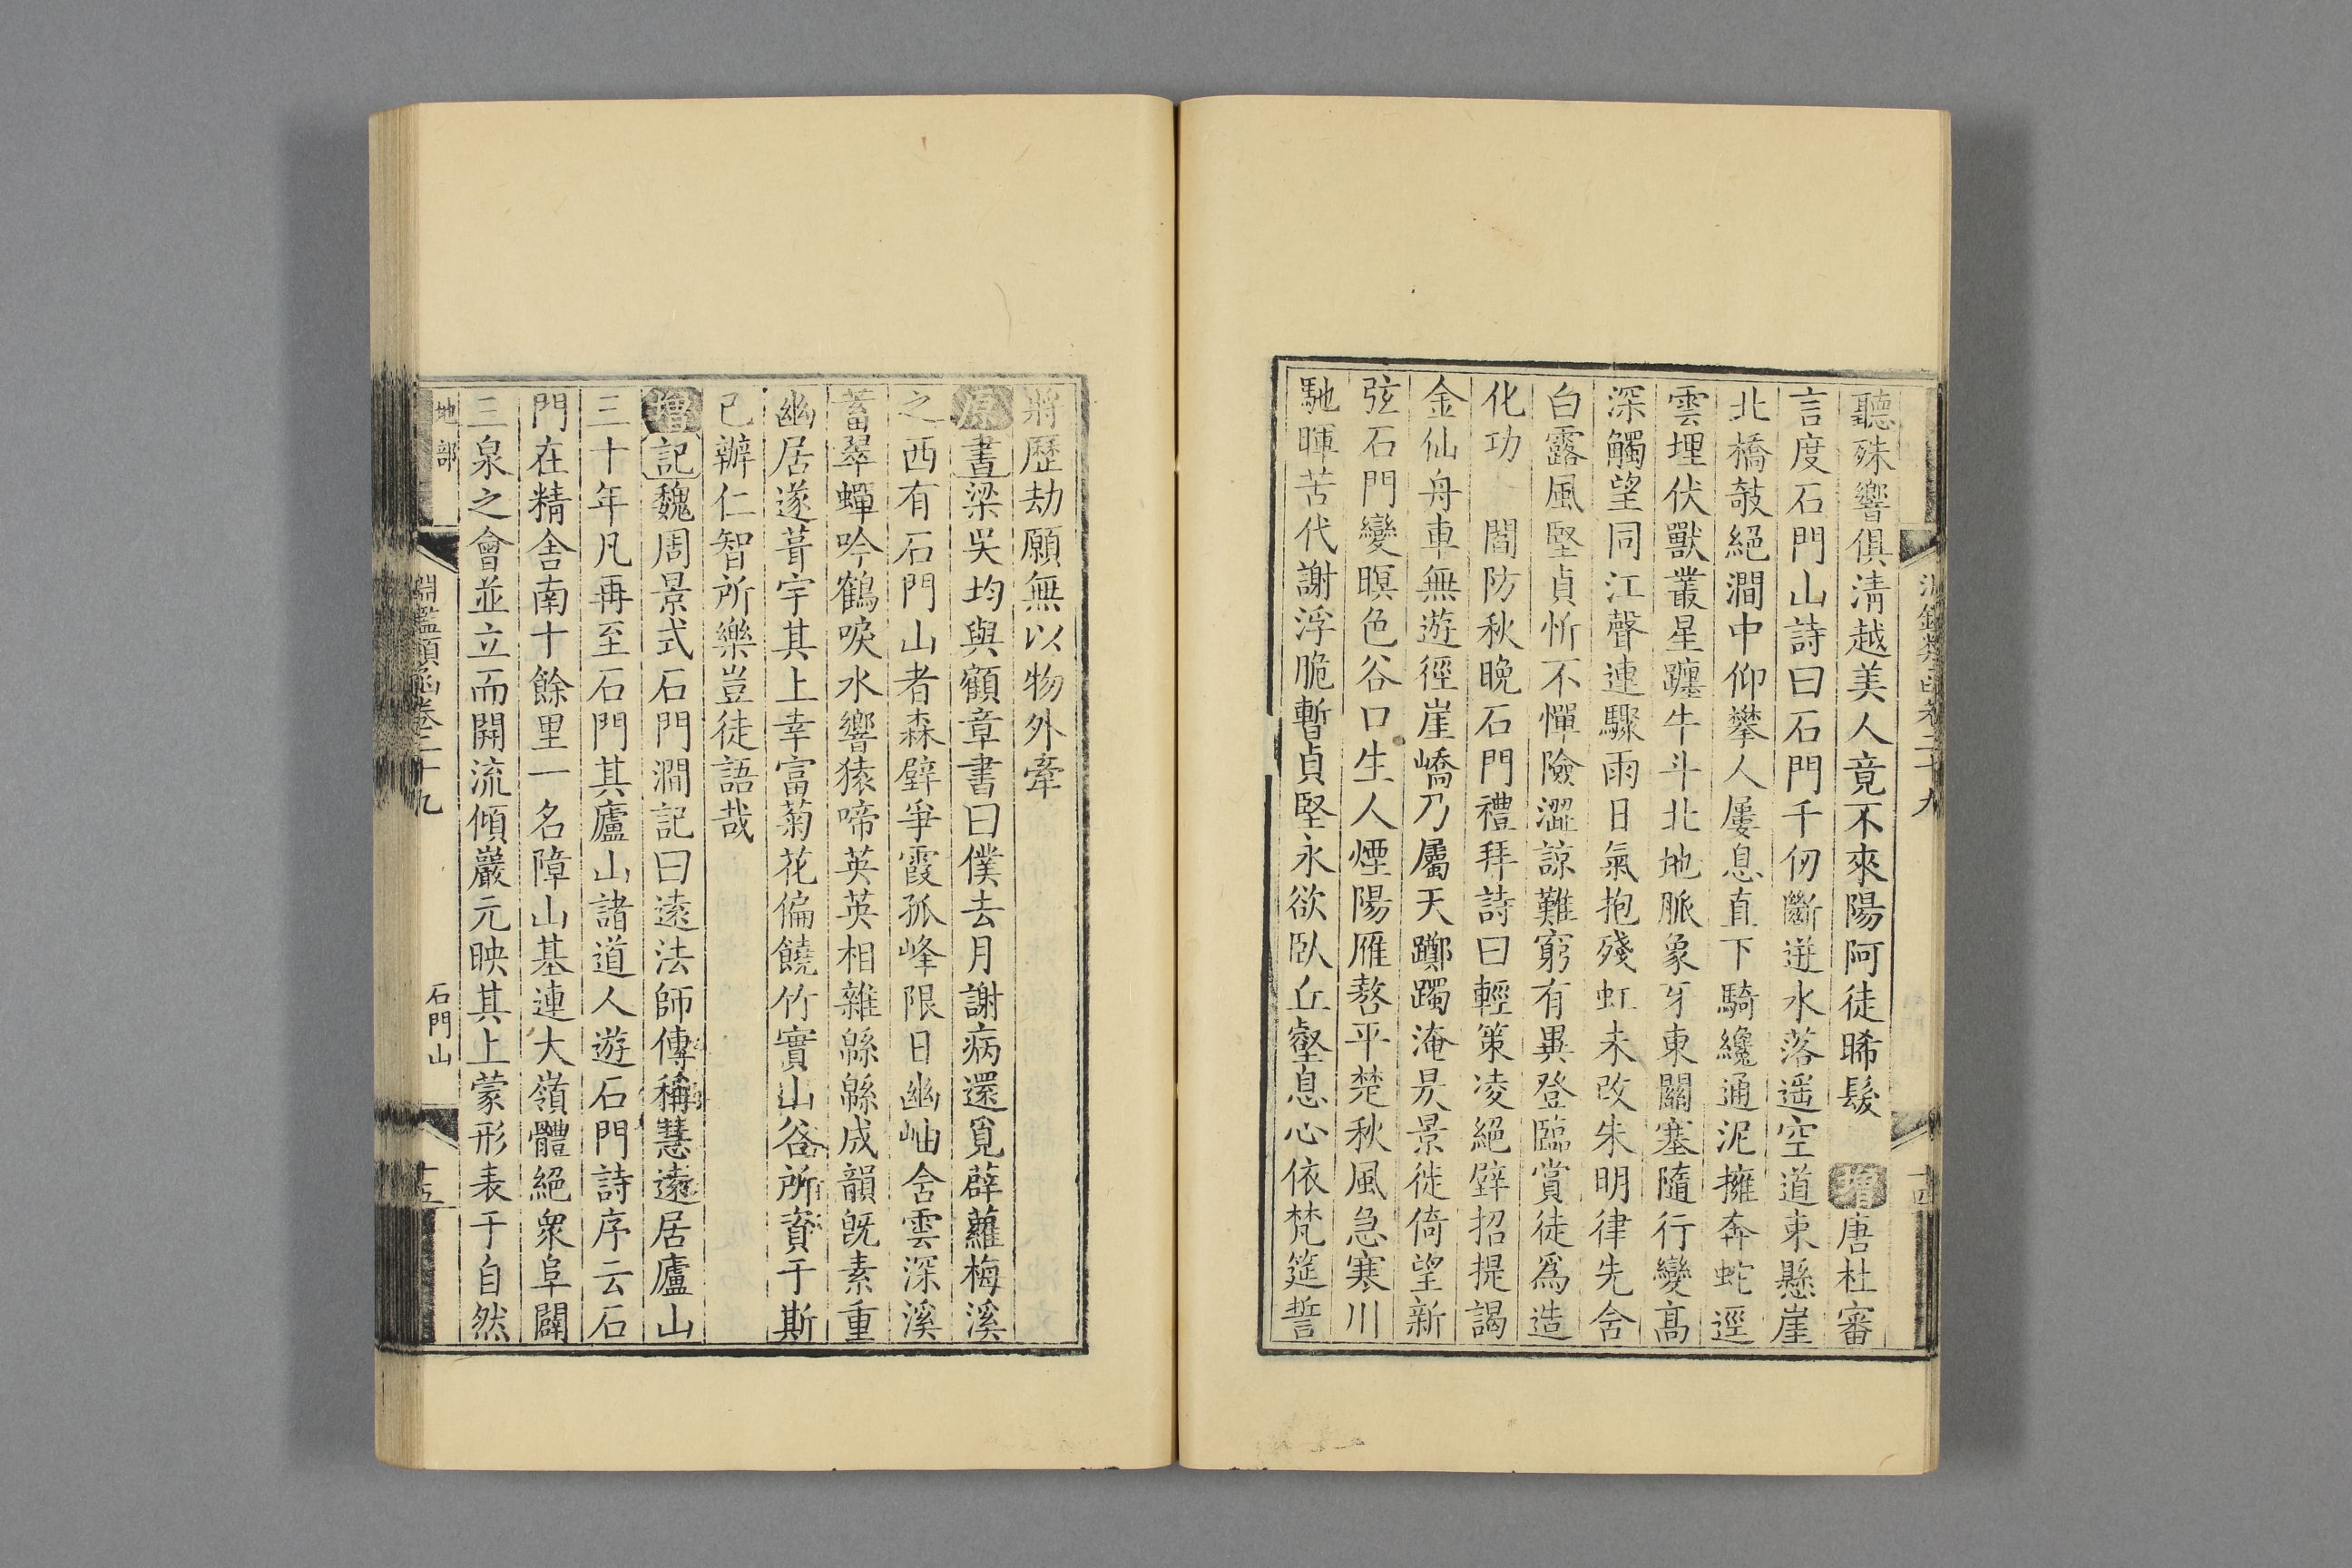 聽殊響俱清越美人竟不來陽阿徒晞髮　增唐杜審
言度石門山詩曰石門千仞斷迸水落遥空道束懸崖
北橋攲絕澗中仰攀人屢息直下騎纔通泥擁奔蛇逕
雲埋伏獸叢星躔牛斗北地脈象牙東關塞隨行變高
深觸望同江聲連驟雨日氣抱殘虹未改朱明律先含
白露風堅貞忻不憚險澀諒難窮有異登臨賞徒為造
化功　閻防秋晚石門禮拜詩曰輕策凌絕壁招提謁
金仙舟車無遊徑崖嶠乃屬天躑躅淹昃景徙倚望新
弦石門變暝色谷口生人煙陽雁嗸平楚秋風急寒川
馳暉苦代謝浮脆暫貞堅永欲臥丘壑息心依梵筵誓
十四
將歷劫願無以物外牽
原書梁吴均與顧章書曰僕去月謝病還覓薜蘿梅溪
之西有石門山者森壁爭霞孤峰限日幽岫含雲深溪
蓄翠蟬吟鶴唳水響猿啼英英相雜緜緜成韻旣素重
幽居遂葺宇其上幸富菊花偏饒竹實山谷所資于斯
已辦仁智所樂豈徒語哉
增記魏周景式石門澗記曰遠法師傳稱慧遠居廬山
三十年凡再至石門其廬山諸道人遊石門詩序云石
門在精舍南十餘里一名障山基連大嶺體絕衆阜闢
三泉之會並立而開流傾巖元映其上蒙形表于自然
地部
淵鑑類函卷二十九
石門山
十五